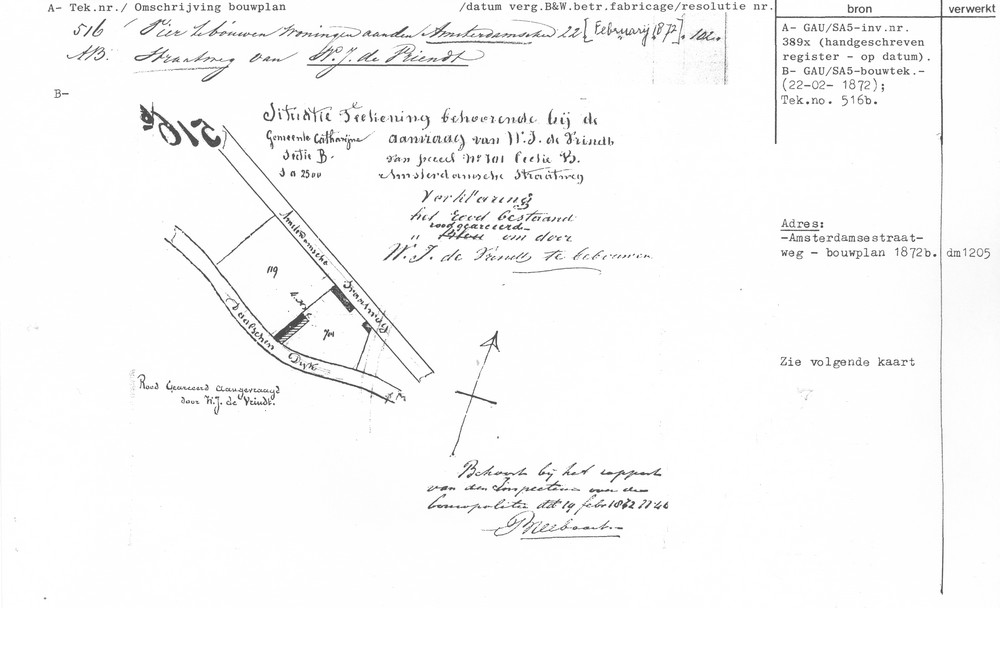 A- Tek.nr./ Omschrijving bouwplan /datum verg.B&W.betr.fabricage/resolutie nr.
bron
verwerkt
516 Vier te bouwen Woningen aan den Amsterdamschen 22 [Februarij 1872]. 102.
AB. Straatweg van W. J. de Vriendt
A- GAU/SA5-inv.nr.
389x (handgeschreven
register - op datum).
B- GAU/SA5-bouwtek.-
(22-02- 1872);
Tek.no. 516b.
B-
516b
Situatie Teekening behoorende bij de
Gemeente Catharijne
aanvraag van W. J. de Vrindt
Sectie B.
van perceel No 701 Sectie B.
1 a 2500
Amsterdamsche Straatweg
Verklaring
het Rood bestaand
rood gearceerd
" om door
W. J. de Vrindt te bebouwen
Adres:
-Amsterdamsestraat-
weg - bouwplan 1872b.
dm1205
Amsterdamsche Straatweg
119
701
Daalschen Dijk
Zie volgende kaart
Rood Gearceerd aangevraagd
door W. J. de Vrindt.
Behoort bij het rapport
van den Inspecteur over de
bouwpolitie dd 19 febr 1872 No 44